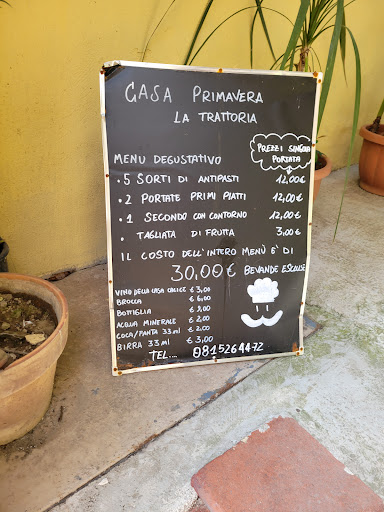 CASA PRIMAVERA
LA TRATTORIA
PREZZI SINGOLA
PORTATA
MENU DEGUSTATIVO
• 5 SORTI DI ANTIPASTI 12,00€
• 2 PORTATE PRIMI PIATTI 12,00€
• 1 SECONDO CON CONTORNO 12,00€
• TAGLIATA DI FRUTTA 3,00€
IL COSTO DELL'INTERO MENÙ E' DI
30,00€ BEVANDE ESCLUSE
VINO DELLA CASA CALICE € 3,00
BROCCA € 6,00
BOTTIGLIA
ACQUA MINERALE € 2,00
COCA/FANTA 33ml € 2,00
BIRRA 33ml € 3,00
TEL.... 0815264472